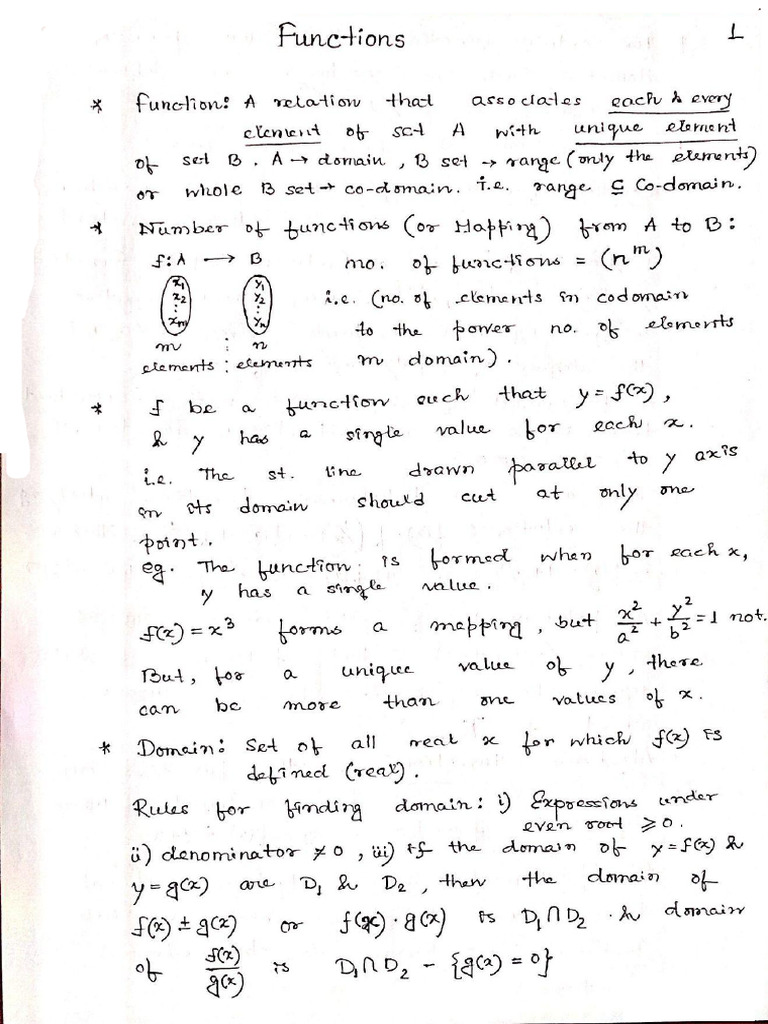 Functions 1
* Function: A relation that associates each & every
element of set A with unique element
of set B. A → domain, B set → range (only the elements)
or whole B set → co-domain. i.e. range ⊆ Co-domain.
* Number of functions (or Mapping) from A to B:
f: A → B no. of functions = (n^m)
x₁ y₁
x₂ y₂ i.e. (no. of elements in codomain
⋮ ⋮
xₘ yₙ to the power no. of elements
m : n
elements : elements in domain).
* f be a function such that y = f(x),
& y has a single value for each x.
i.e. The st. line drawn parallel to y axis
in its domain should cut at only one
point.
eg. The function is formed when for each x,
y has a single value.
f(x) = x³ forms a mapping, but x²/a² + y²/b² = 1 not.
But, for a unique value of y, there
can be more than one values of x.
* Domain: Set of all real x for which f(x) is
defined (real).
Rules for finding domain: i) Expressions under
even root ≥ 0.
ii) denominator ≠ 0, iii) if the domain of y = f(x) &
y = g(x) are D₁ & D₂, then the domain of
f(x) ± g(x) or f(x) · g(x) is D₁∩D₂ · & domain
of f(x)/g(x) is D₁∩D₂ - {g(x) = 0}